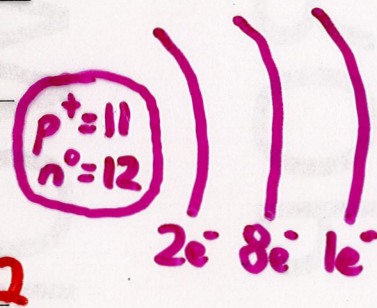 p⁺=11
n⁰=12
2e⁻ 8e⁻ 1e⁻
2